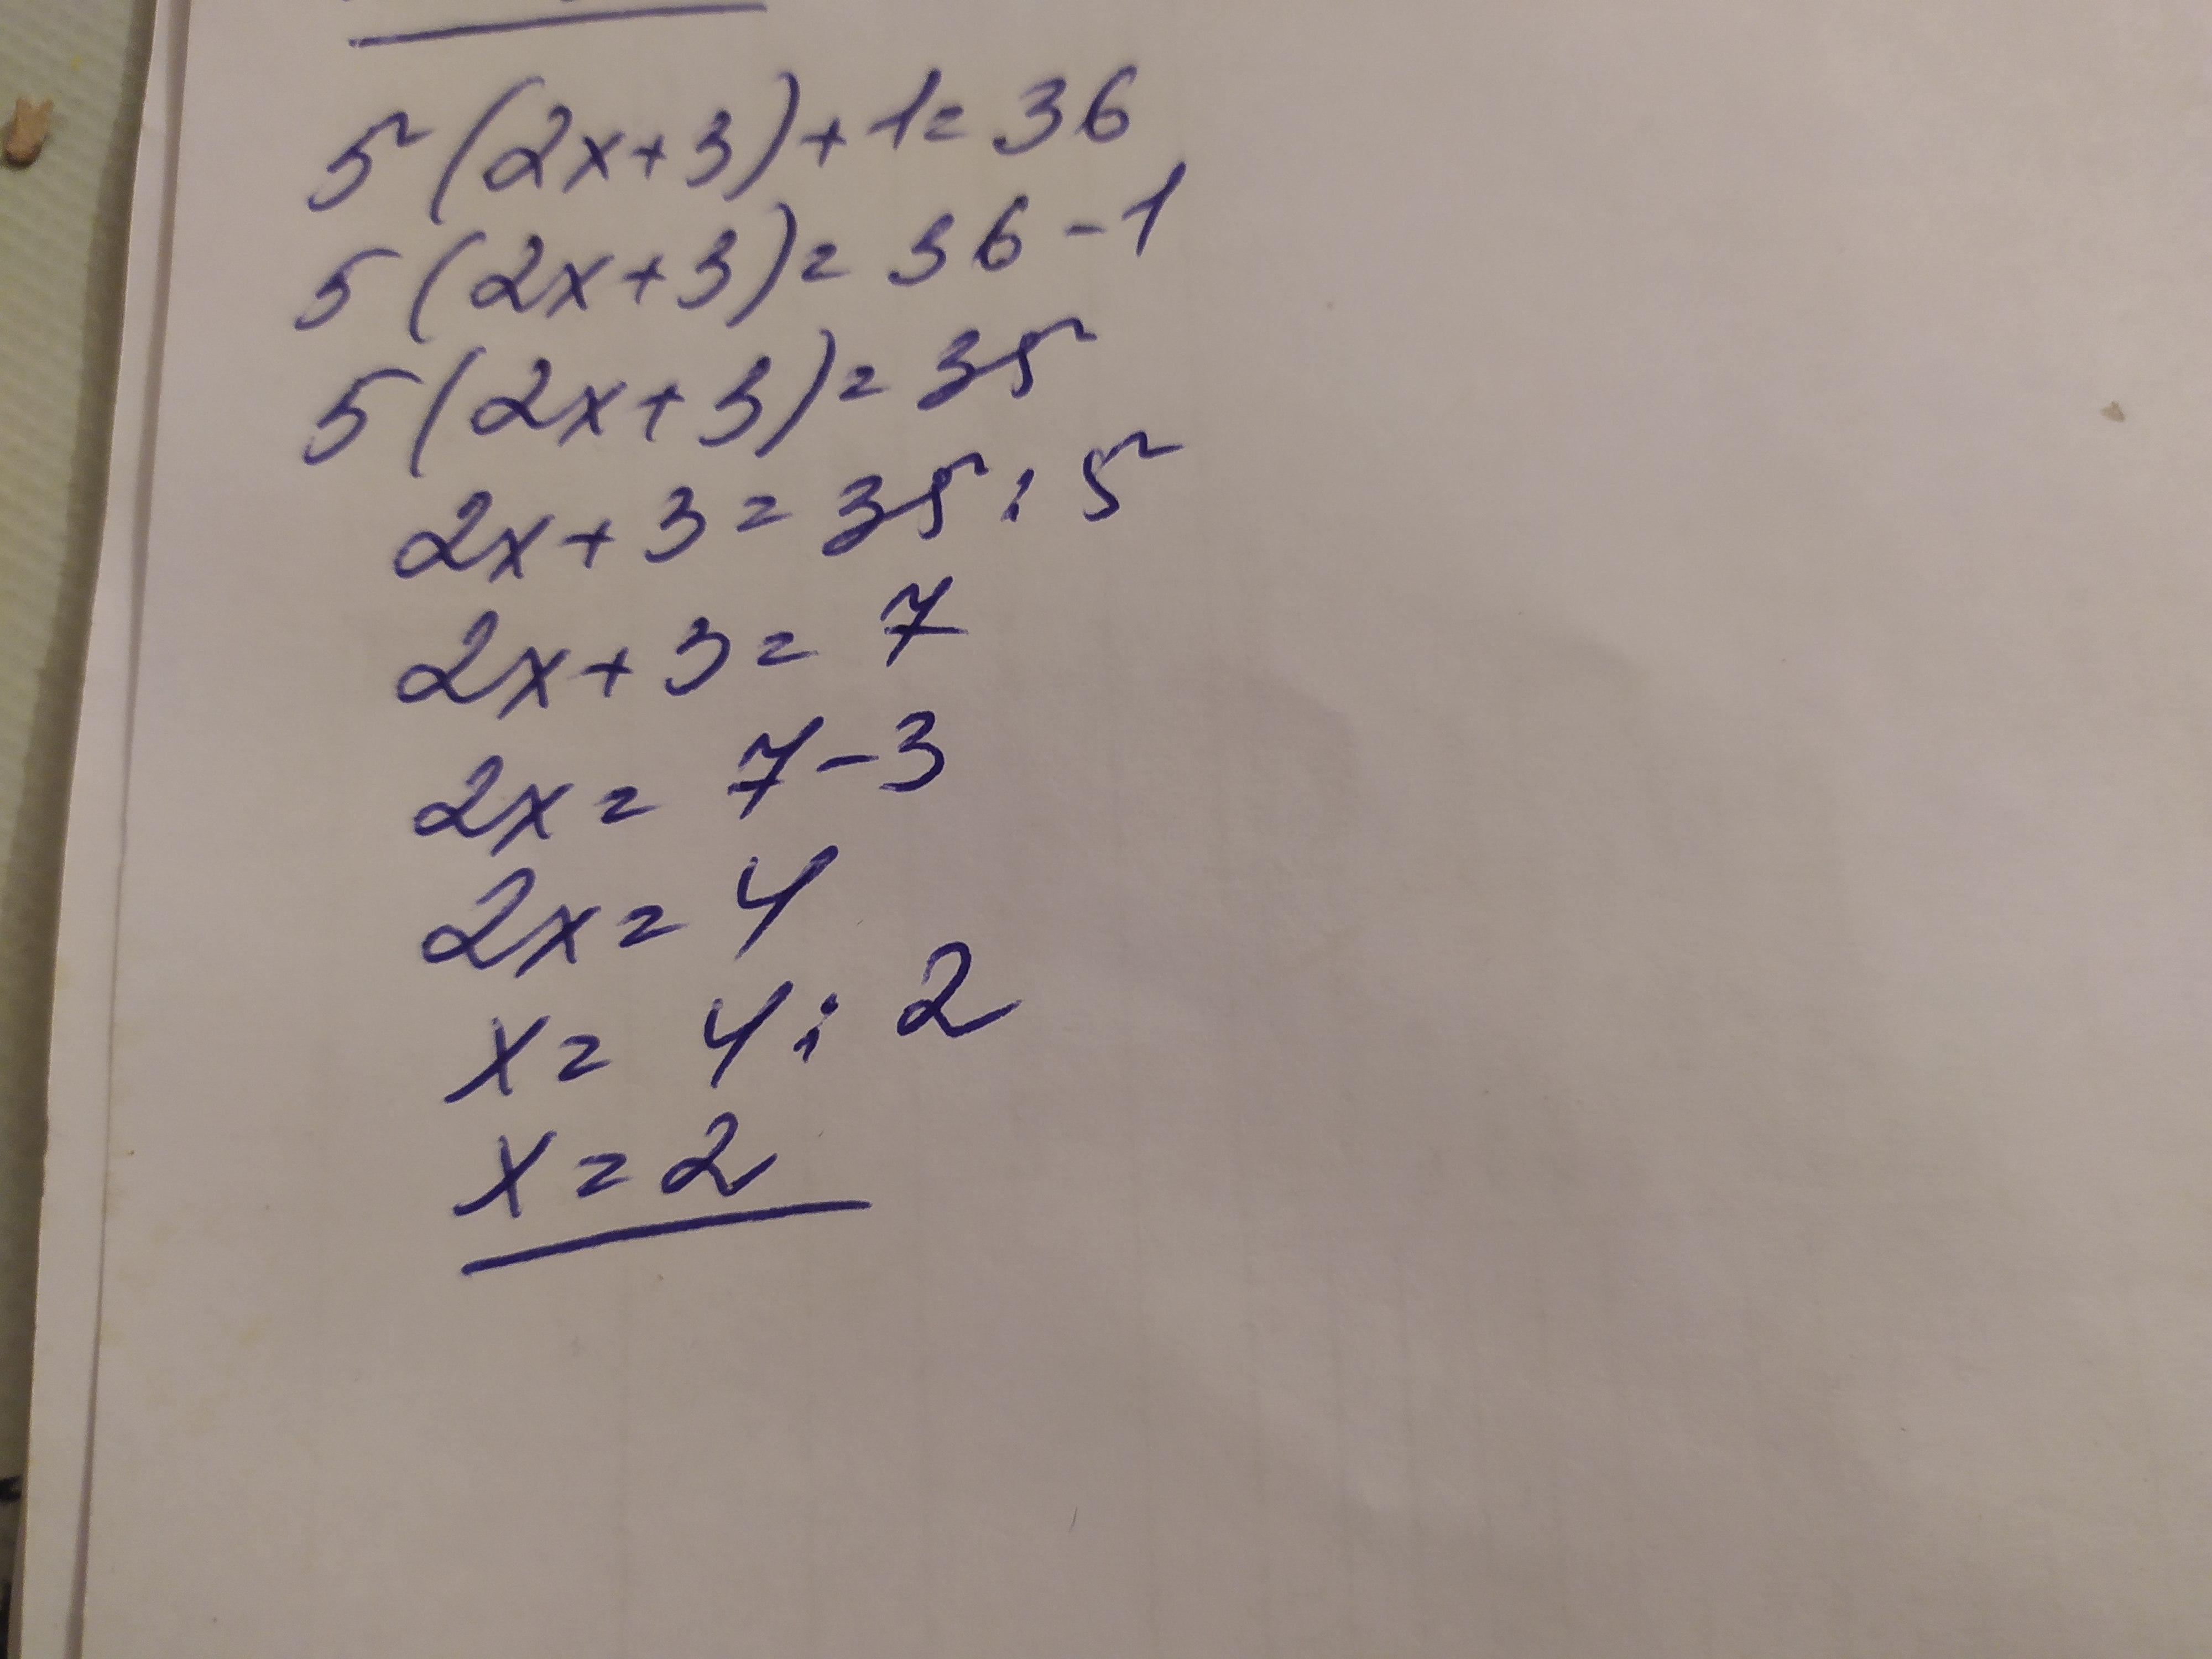 5(2x+3)+1=36
5(2x+3)=36-1
5(2x+3)=35
2x+3=35:5
2x+3=7
2x=7-3
2x=4
x=4:2
x=2